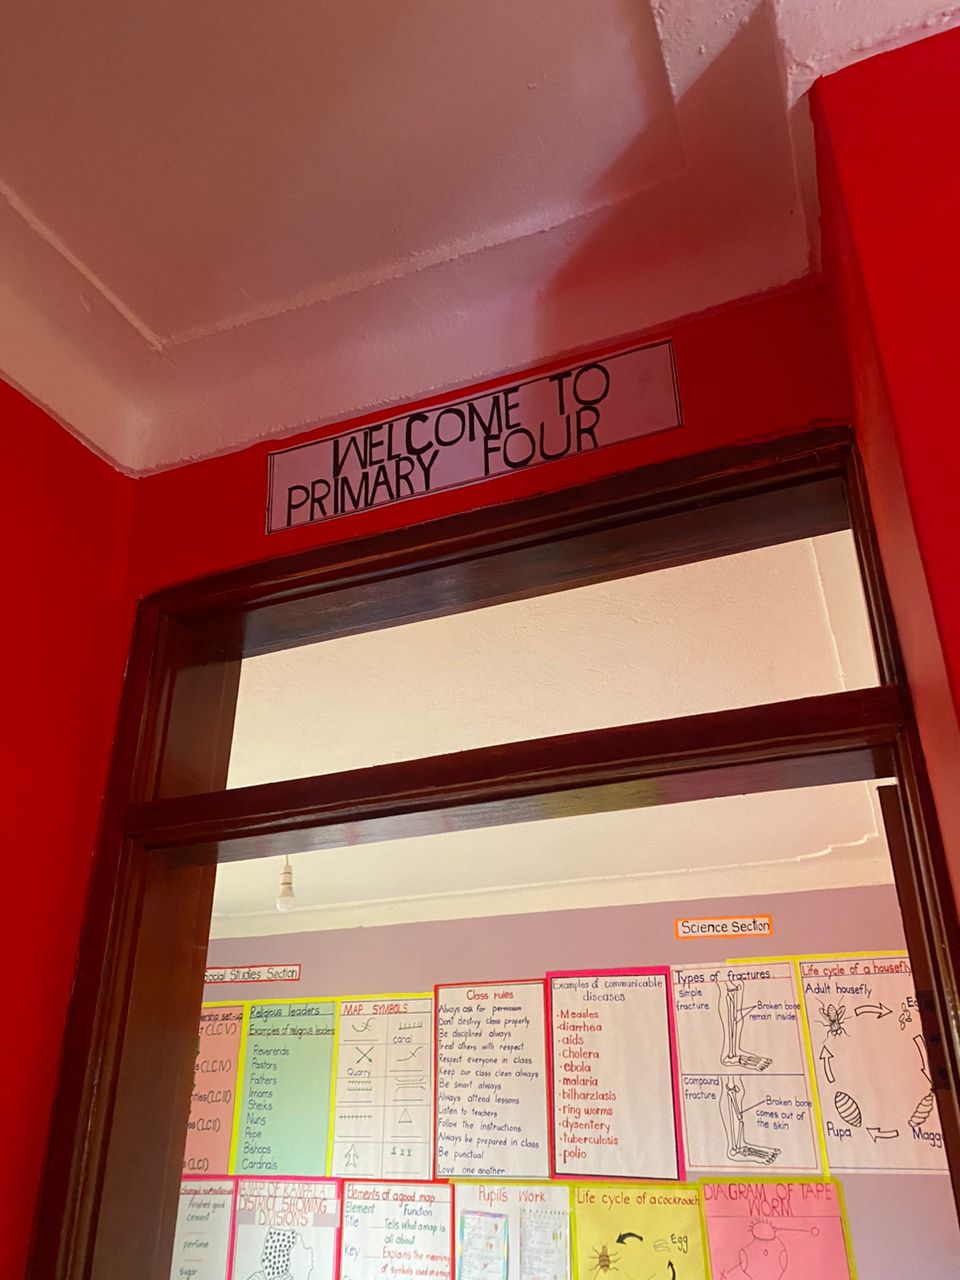 WELCOME TO
PRIMARY FOUR
Science Section
Social Studies Section
(LC V)
(LC IV)
(LC III)
(LC II)
(LC I)
Religious leaders
Examples of religious leaders
Reverends
Pastors
Fathers
Imams
Sheiks
Nuns
Pope
Bishops
Cardinals
MAP SYMBOLS
canal
Quarry
Class rules
Always ask for permission
Don't destroy class property
Be disciplined always
Treat others with respect
Respect everyone in class
Keep our class clean always
Be smart always
Always attend lessons
Listen to teachers
Follow the instructions
Always be prepared in class
Be punctual
Love one another
Examples of communicable
diseases
Measles
diarrhea
aids
Cholera
ebola
malaria
bilharziasis
ring worms
dysentery
tuberculosis
polio
Types of fractures.
Simple
fracture
Broken bone
remain inside
Compound
fracture
Broken bone
comes out of
the skin
Life cycle of a housefly
Adult housefly
Eg
Pupa
Magg
Finished good
cement
perfume
Sugar
DISTRICT SHOWING
DIVISIONS
Elements of a good map
Element Function
Title Tells what a map is
all about
Key Explains the meaning
of symbols used on a map
Pupil's Work
Life cycle of a cockroach
Egg
DIAGRAM OF TAPE
WORM